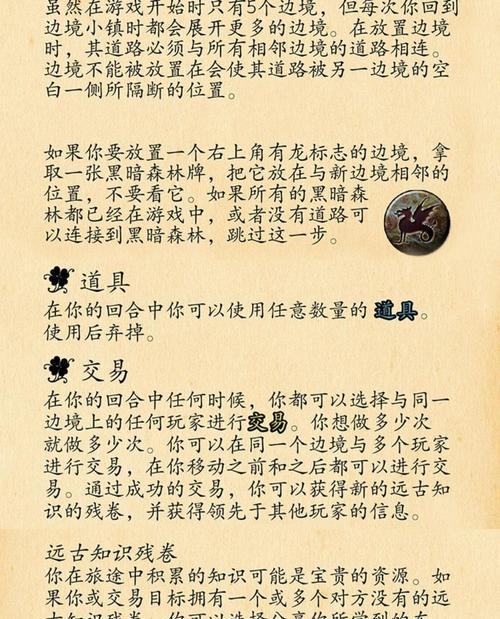 虽然在游戏开始时只有5个边境，但每次你回到
边境小镇时都会展开更多的边境。在放置边境
时，其道路必须与所有相邻边境的道路相连。
边境不能被放置在会使其道路被另一边境的空
白一侧所隔断的位置。
如果你要放置一个右上角有龙标志的边境，拿
取一张黑暗森林牌，把它放在与新边境相邻的
位置，不要看它。如果所有的黑暗森
林都已经在游戏中，或者没有道路可
以连接到黑暗森林，跳过这一步。
道具
在你的回合中你可以使用任意数量的 道具。
使用后弃掉。
交易
在你的回合中任何时候，你都可以选择与同一
边境上的任何玩家进行交易。你想做多少次
就做多少次。你可以在同一个边境与多个玩家
进行交易，在你移动之前和之后都可以进行交
易。通过成功的交易，你可以获得新的远古知
识的残卷，并获得领先于其他玩家的信息。
远古知识残卷
你在旅途中积累的知识可能是宝贵的资源。如
果你或交易目标拥有一个或多个对方没有的远
古知识残卷，你可以选择分享你所学到的东